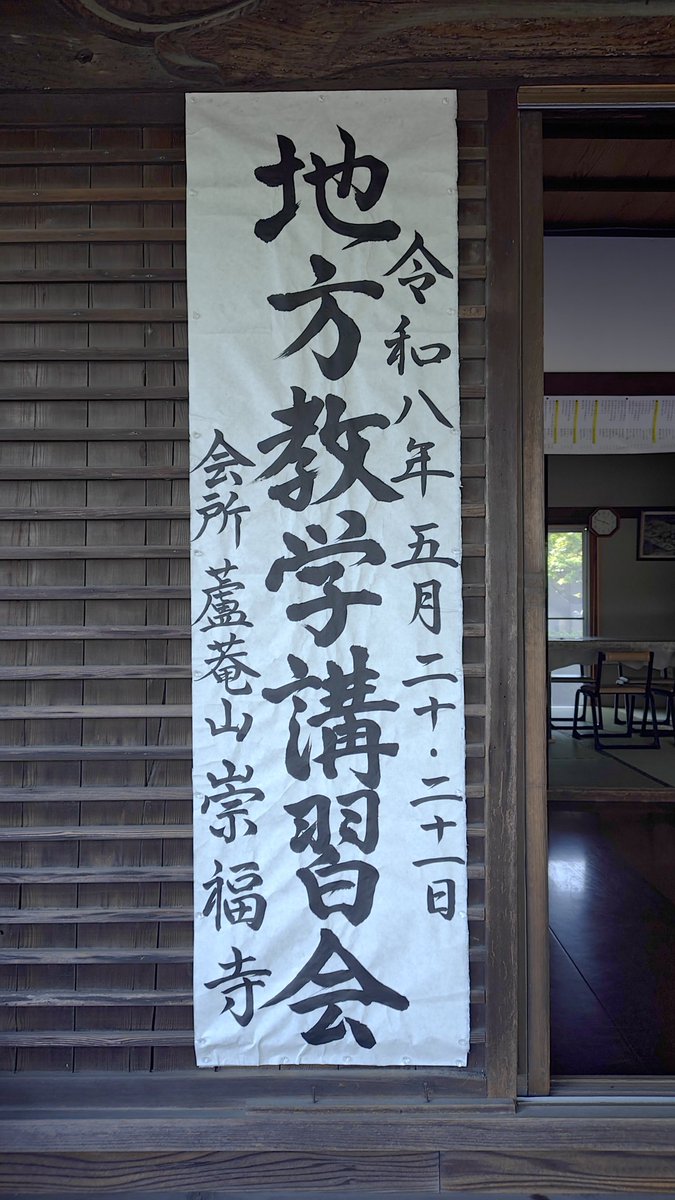 令和八年 五月二十・二十一日
地方教学講習会
会所 蘆菴山崇福寺